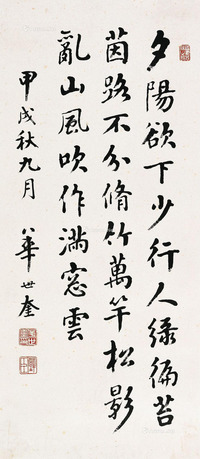 夕陽欲下少行人綠徧苔
茵路不分脩竹萬竿松影
亂山風吹作滿窓雲
甲戌秋九月
華世奎